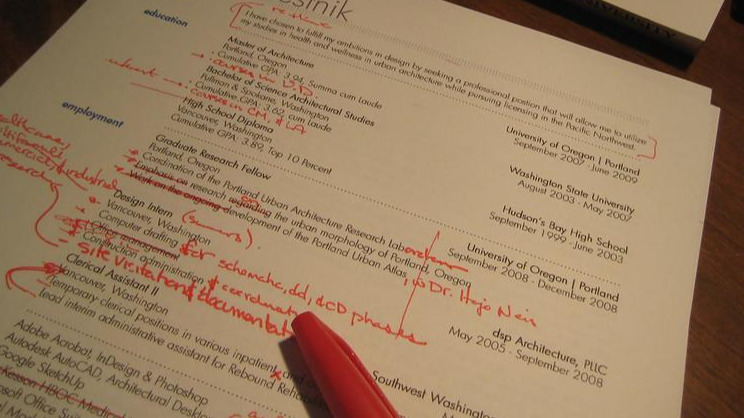 UNIVERSITY
I have chosen to fulfill my ambitions in design by seeking a professional position that will allow me to utilize
my studies in health and wellness in urban architecture while pursuing licensing in the Pacific Northwest.
education
Master of Architecture
University of Oregon | Portland
Portland, Oregon
September 2007 - June 2009
Cumulative GPA: 3.94, Summa cum Laude
courses in U.D.
Bachelor of Science Architectural Studies
Washington State University
Pullman & Spokane, Washington
August 2003 - May 2007
Cumulative GPA: 3.65, cum Laude
courses in CM, & LA
High School Diploma
Hudson's Bay High School
Vancouver, Washington
September 1999 - June 2003
Cumulative GPA: 3.89, Top 10 Percent
employment
Graduate Research Fellow
University of Oregon | Portland
Portland, Oregon
September 2008 - December 2008
Coordination of the Portland Urban Architecture Research Laboratory
Emphasis on research regarding the urban morphology of Portland, Oregon
w Dr. Hajo Neis
Work on the ongoing development of the Portland Urban Atlas
Design Intern (summers).
dsp Architecture, PLLC
Vancouver, Washington
May 2005 - September 2008
Computer drafting for schematic, dd, & CD phases
office management
Construction administration & coordination
- site visitation & documentation
Clerical Assistant II
Southwest Washington
Vancouver, Washington
Temporary clerical positions in various inpatient and
Lead interim administrative assistant for Rebound Rehab
Adobe Acrobat, InDesign & Photoshop
Autodesk AutoCAD, Architectural Desktop
Google SketchUp
Microsoft Office